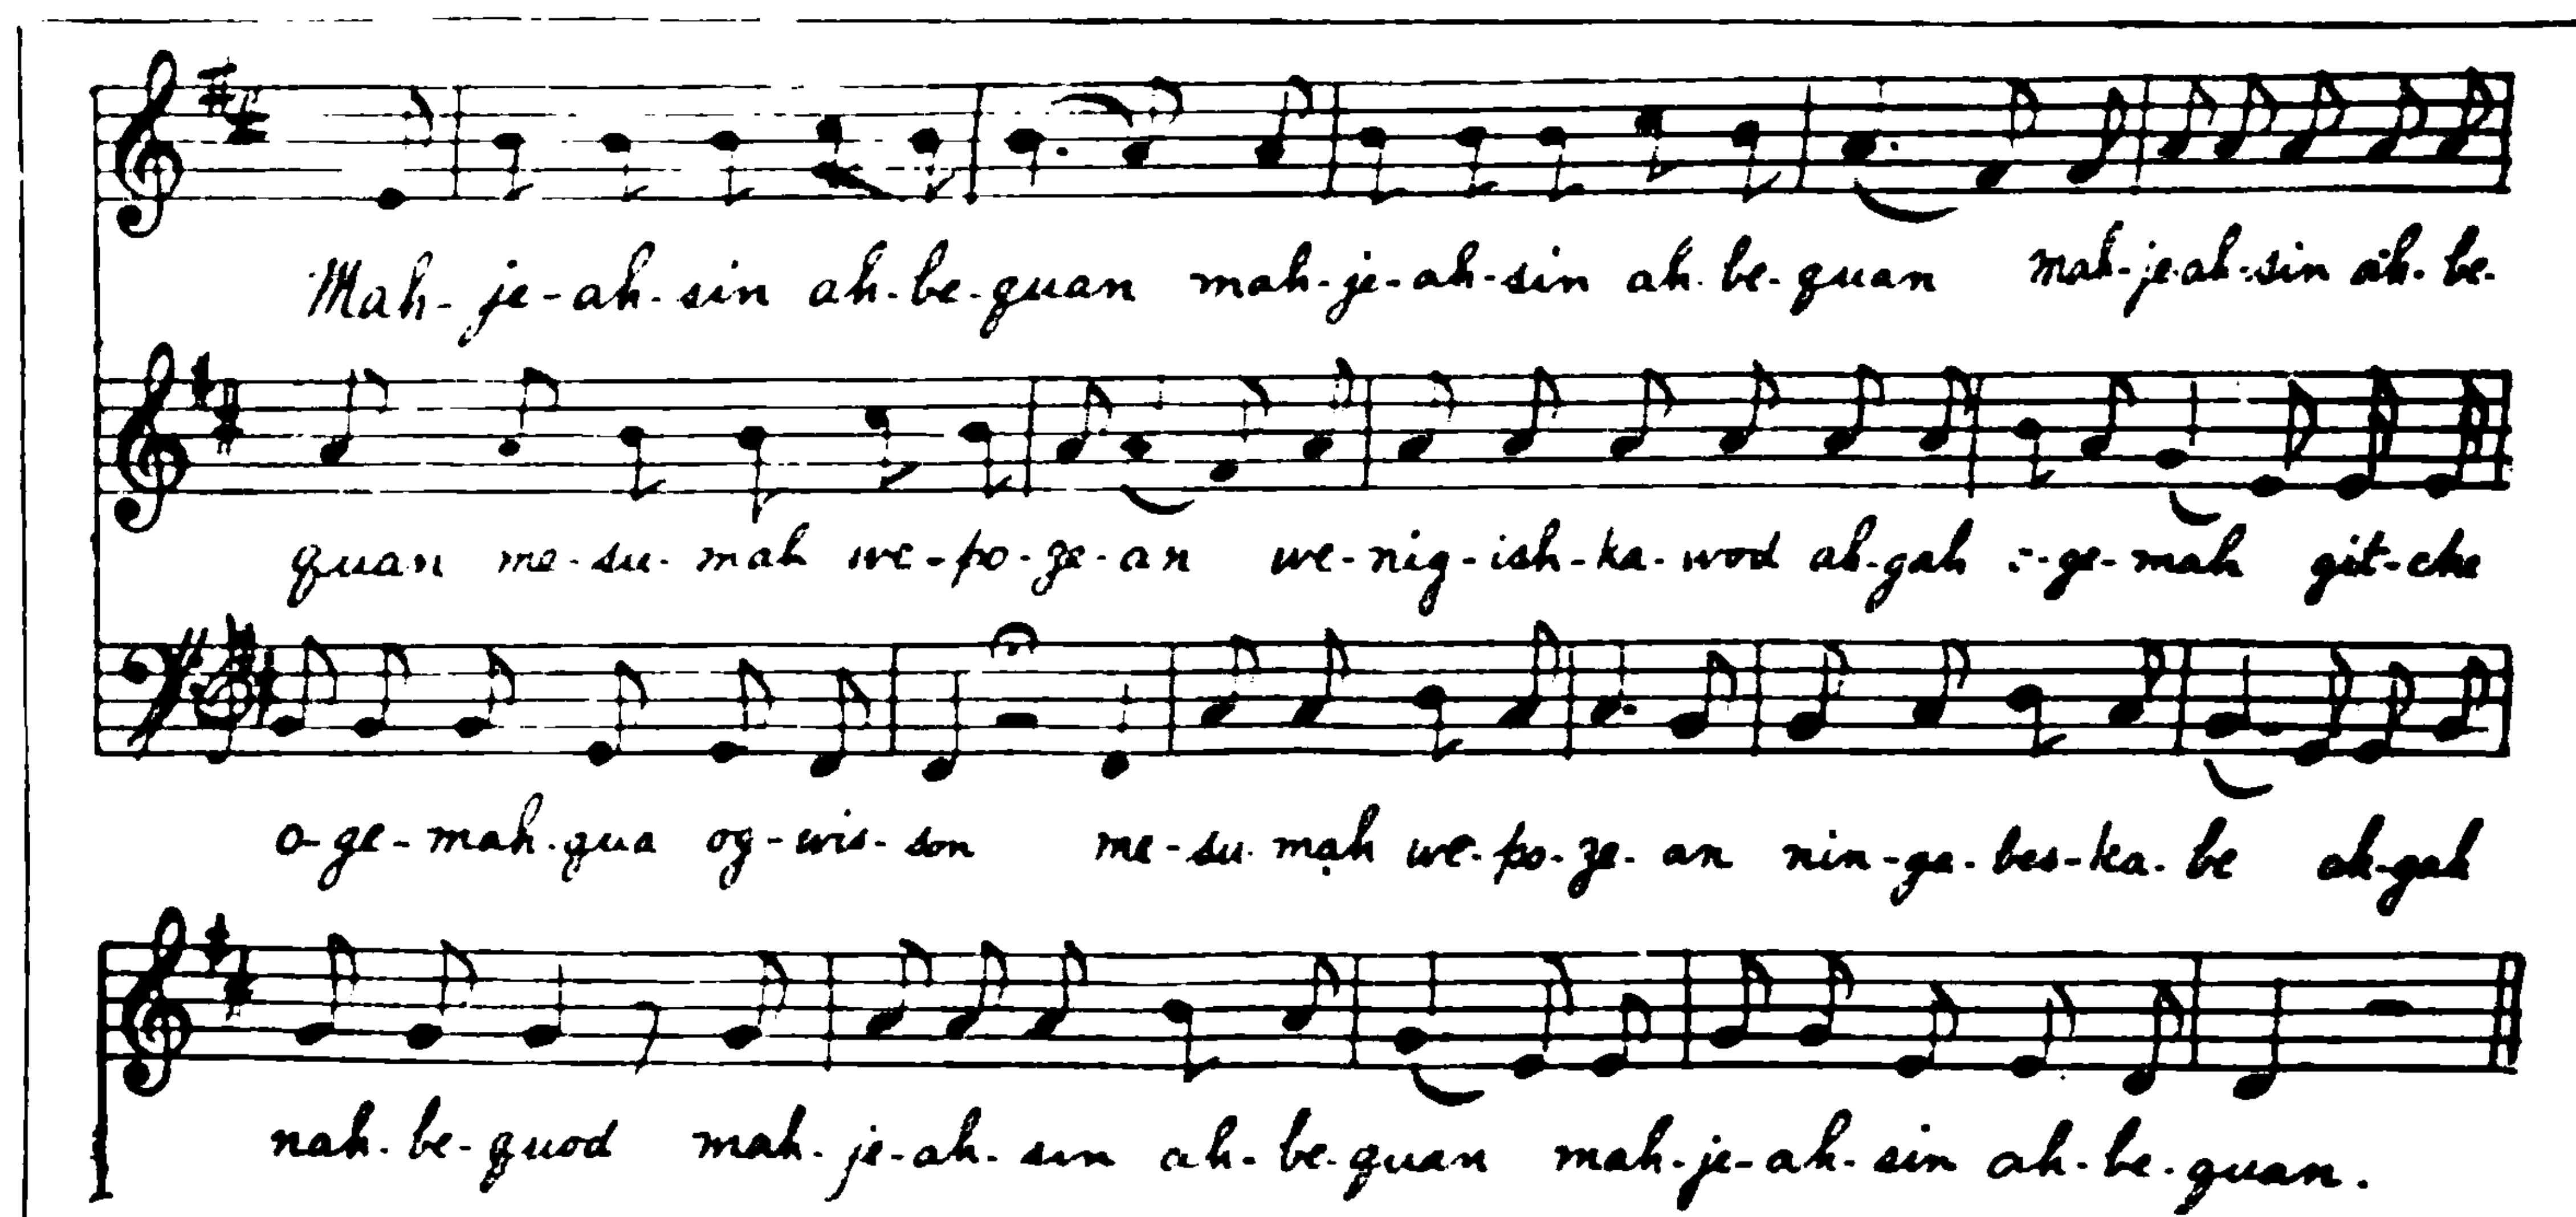 Mah-je-ah-sin ah-be-quan mah-je-ah-sin ah-be-quan mah-je-ah-sin ah-be-
quan me-su-mah we-po-ze-an we-nig-ish-ka-wod ah-gah -ge-mah git-che
o-ge-mah-qua og-wis-son me-su-mah we-po-ze-an nin-ga-bes-ka-be ah-gah
nah-be-quod mah-je-ah-sin ah-be-quan mah-je-ah-sin ah-be-quan.